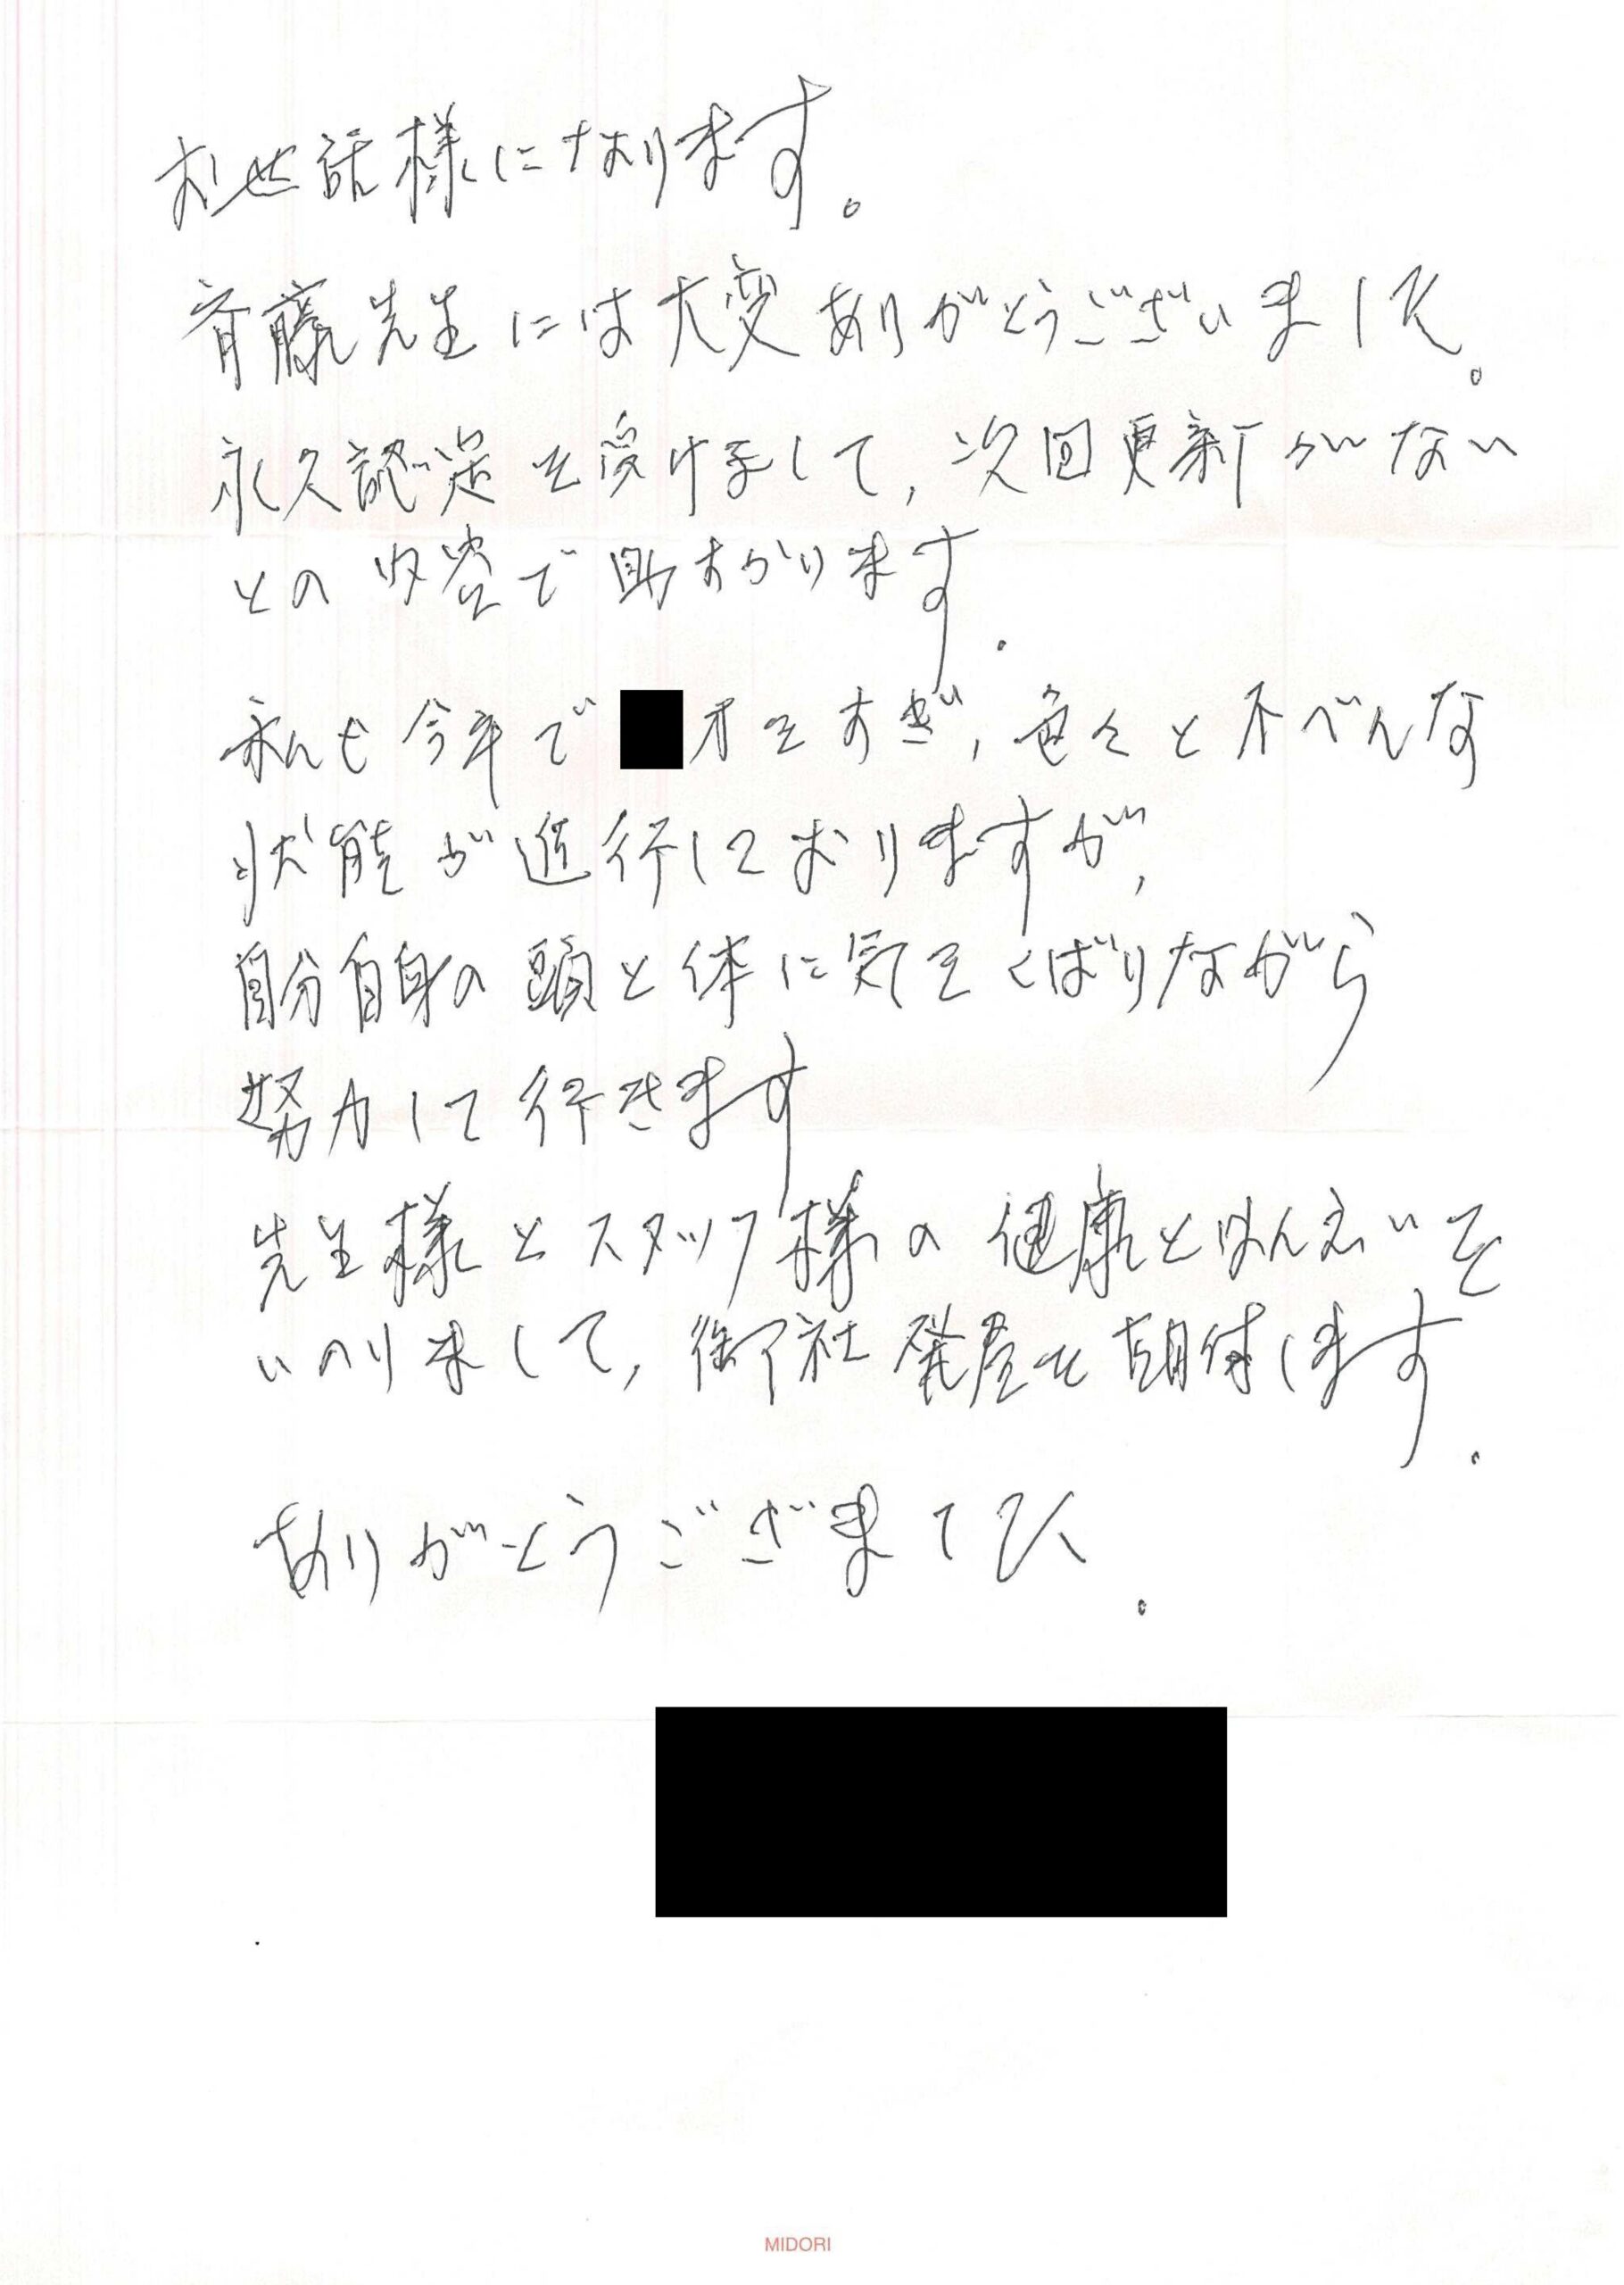 お世話様になります。
斉藤先生には大変ありがとうございました。
永久認定を受けまして、次回更新がない
との内容で助すかります.
私も今年で 才をすぎ、色々と不べんな
状態が進行しておりますが、
自分自身の頭と体に気をくばりながら
努力して行きます
先生様とスタッフ様の健康とはんえいを
いのりまして、御社発展を期待します.
ありがとうござました.
MIDORI